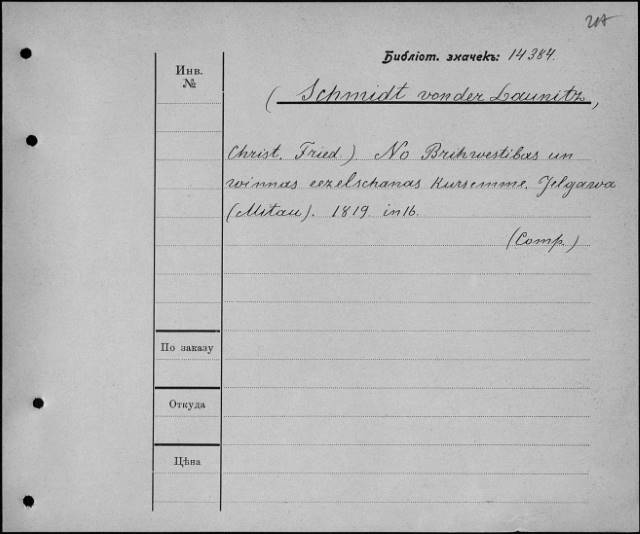 Библіот. значекъ: 14384.
Инв.
№
(Schmidt von der Launitz,
Christ. Fried.). No Brihwestibas un
winnas eezelschanas Kursemme. Jelgawa
(Mitau). 1819. in 16.
(Comp.)
По заказу
Откуда
Цѣна